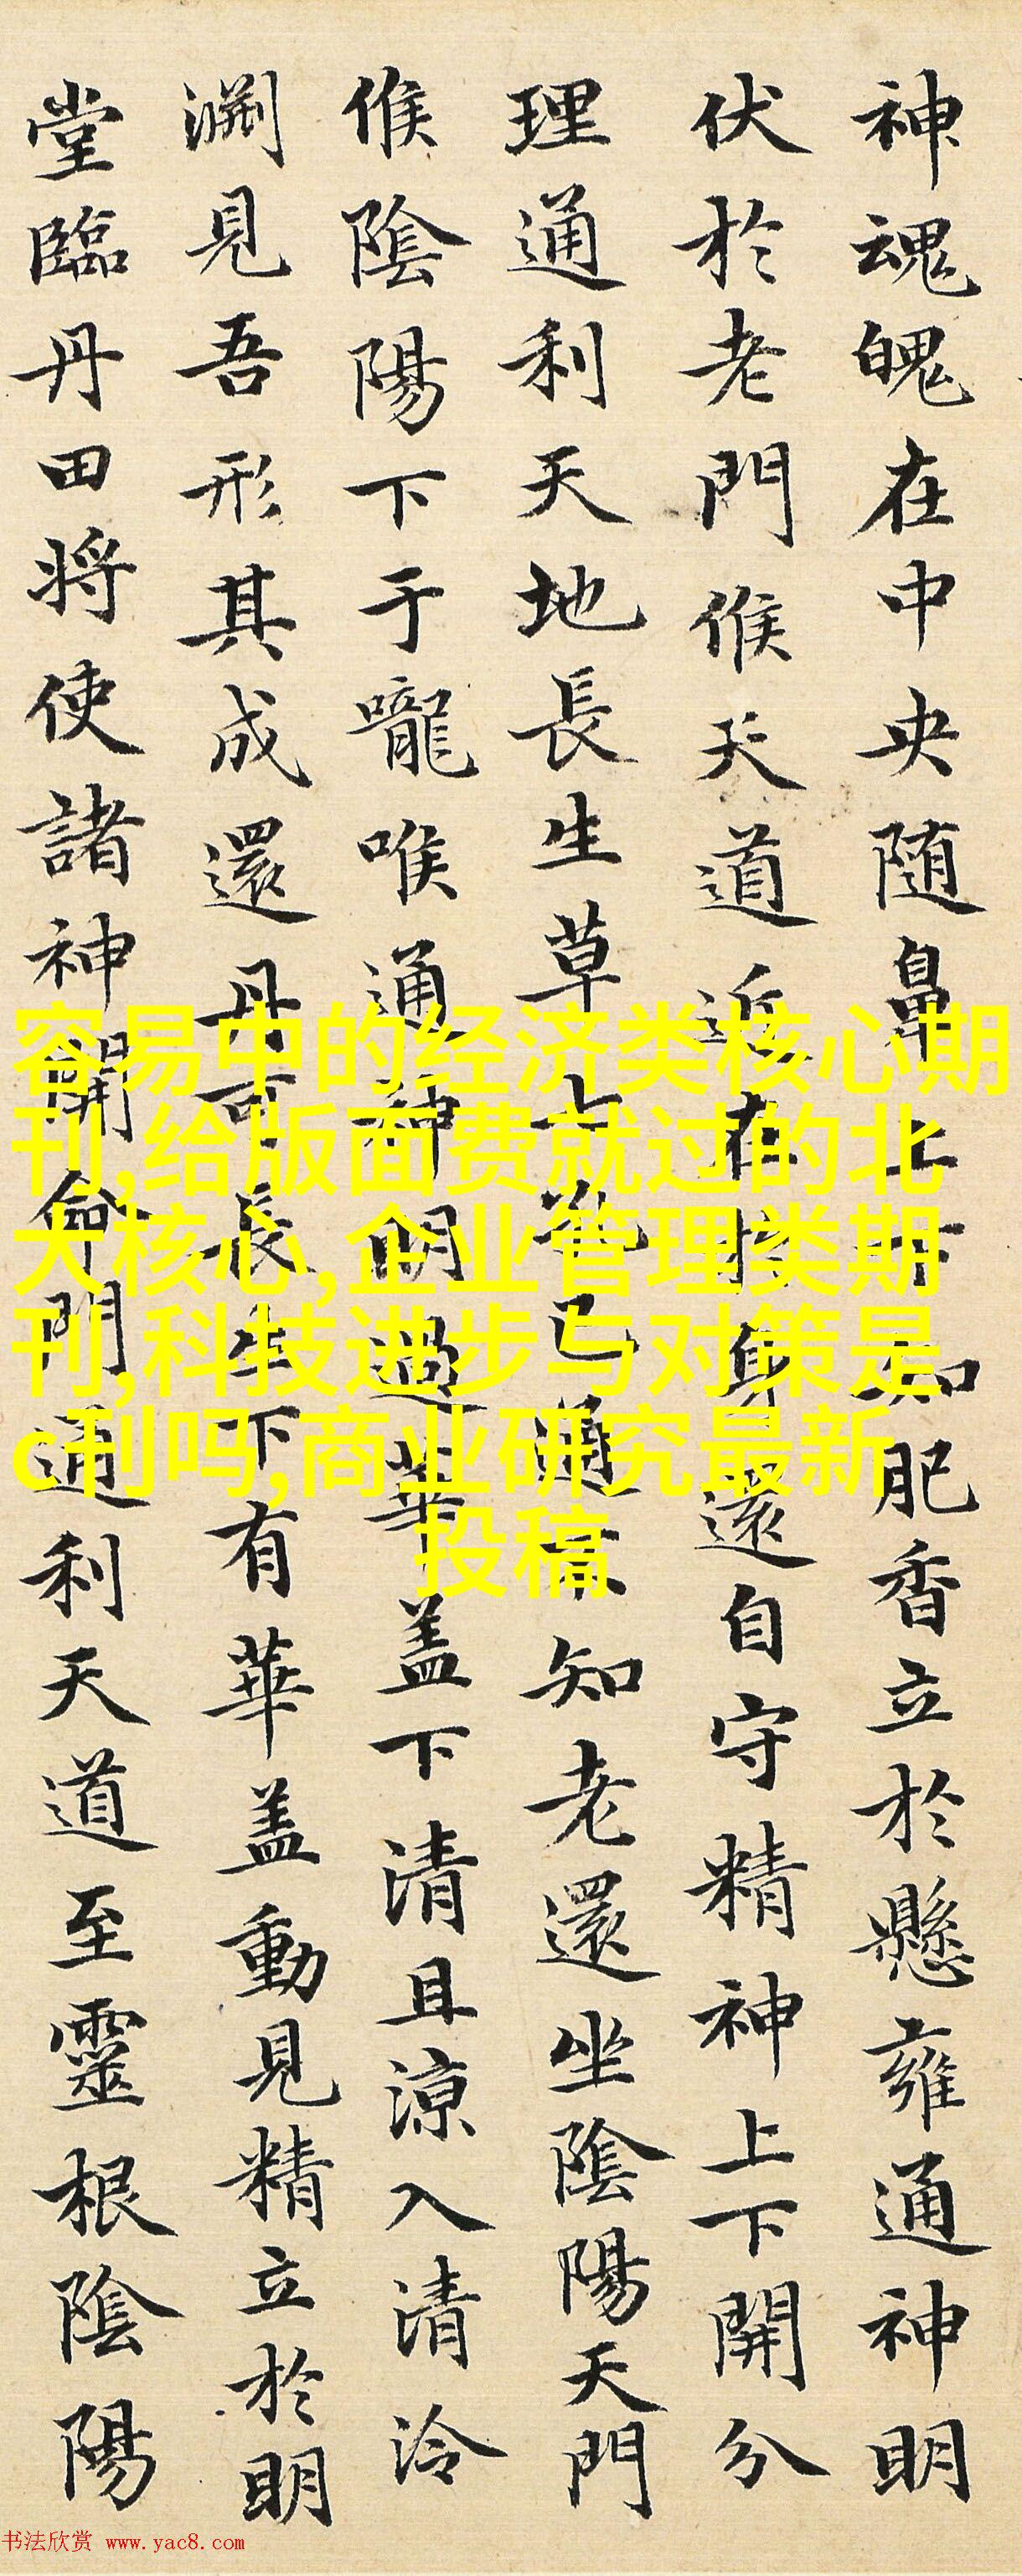 神魂魄在中央随鼻上下知肥香立於懸雍通神明
伏於老門候天道近在於身還自守精神上下開分
理通利天地長生草七孔已通不知老還坐陰陽天門
候陰陽下于嚨喉通神明過華盖下清且涼入清泠
渊見吾形其成還丹可長生下有華盖動見精立於明
堂臨丹田将使諸神開命門通利天道至靈根陰陽
容易中的经济类核心期
刊,给版面费就过的北
大核心,企业管理类期
刊,科技进步与对策是
c刊吗,商业研究最新
投稿
书法欣赏 www.yac8.com